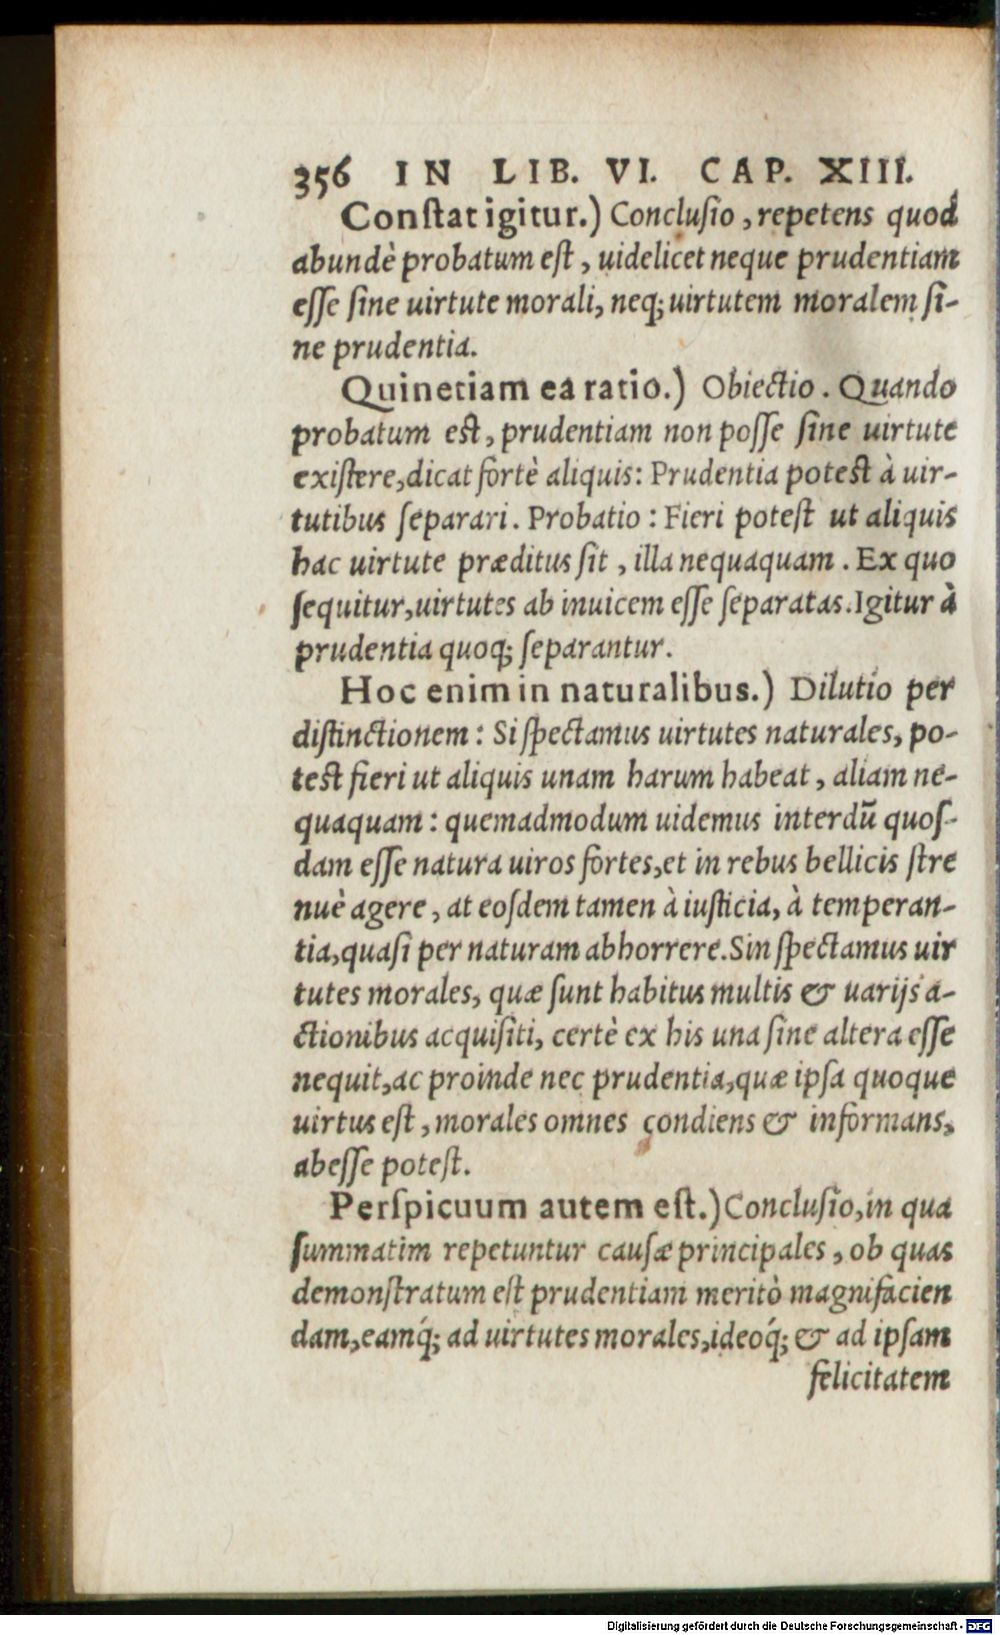 356 IN LIB. VI. CAP. XIII.
Conſtat igitur.) Concluſio, repetens quod
abundè probatum eſt, uidelicet neque prudentiam
eſſe ſine uirtute morali, neq; uirtutem moralem ſi-
ne prudentia.
Quinetiam ea ratio.) Obiectio. Quando
probatum eſt, prudentiam non poſſe ſine uirtute
exiſtere, dicat fortè aliquis: Prudentia poteſt à uir-
tutibus ſeparari. Probatio: Fieri poteſt ut aliquis
hac uirtute præditus ſit, illa nequaquam. Ex quo
ſequitur, uirtutes ab inuicem eſſe ſeparatas. Igitur à
prudentia quoq; ſeparantur.
Hoc enim in naturalibus.) Dilutio per
diſtinctionem: Si ſpectamus uirtutes naturales, po-
teſt fieri ut aliquis unam harum habeat, aliam ne-
quaquam: quemadmodum uidemus interdũ quoſ-
dam eſſe natura uiros fortes, et in rebus bellicis ſtre
nuè agere, at eoſdem tamen à iuſticia, à temperan-
tia, quaſi per naturam abhorrere. Sin ſpectamus uir
tutes morales, quæ ſunt habitus multis & uarijs a-
ctionibus acquiſiti, certè ex his una ſine altera eſſe
nequit, ac proinde nec prudentia, quæ ipſa quoque
uirtus eſt, morales omnes condiens & informans,
abeſſe poteſt.
Perſpicuum autem eſt.) Concluſio, in qua
ſummatim repetuntur cauſæ principales, ob quas
demonſtratum eſt prudentiam meritò magnifacien
dam, eamq́; ad uirtutes morales, ideoq́; & ad ipſam
felicitatem
Digitalisierung gefördert durch die Deutsche Forschungsgemeinschaft - DFG